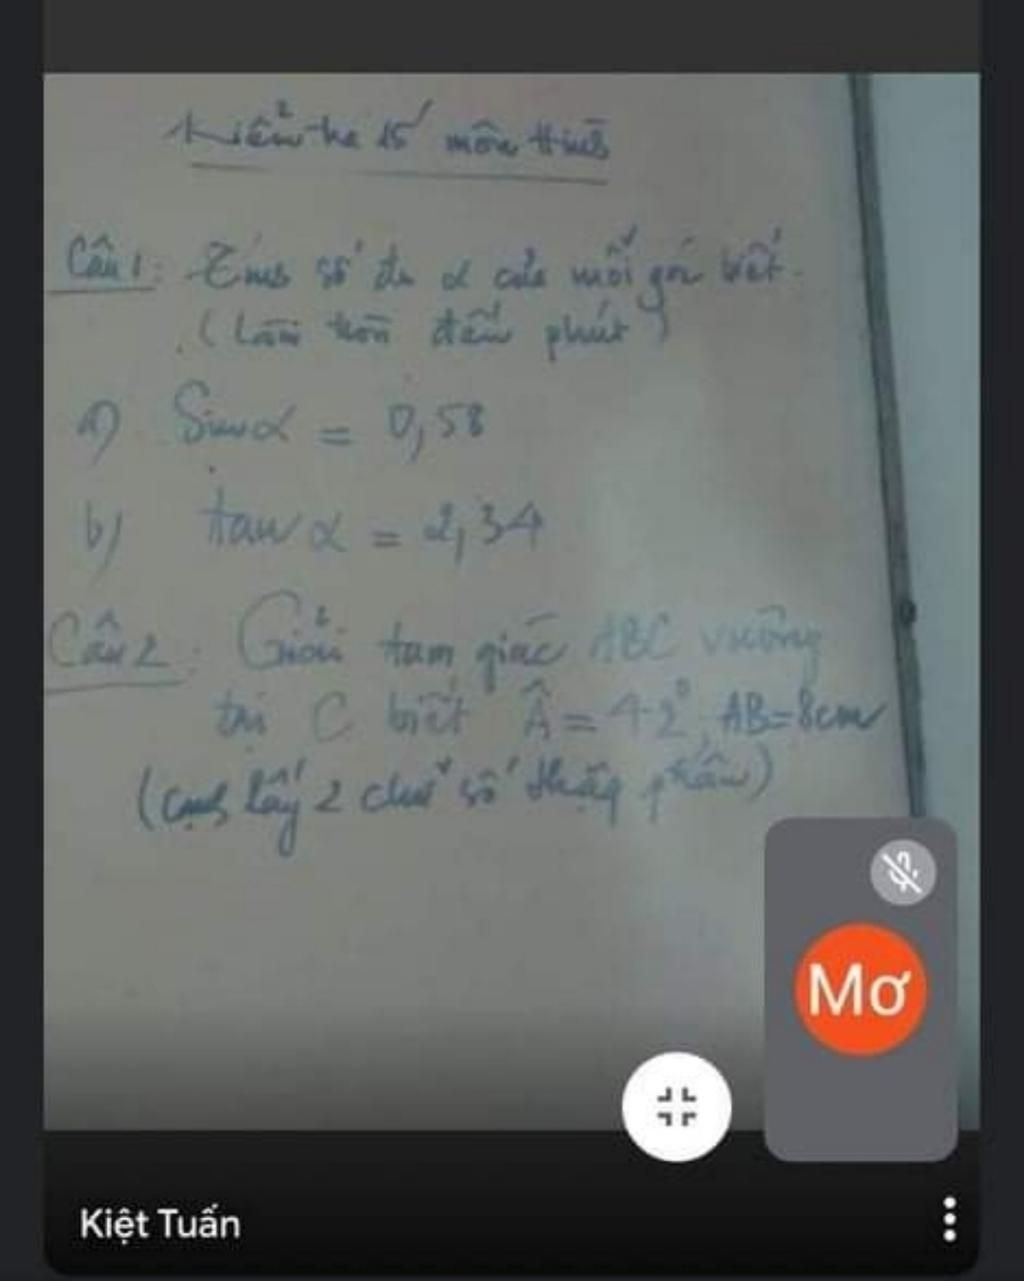 Kiểm tra 15' môn Hình
Câu 1: Tìm số đo α của mỗi góc biết.
(Làm tròn đến phút)
a) Sin α = 0,58
b) tan α = 2,34
Câu 2: Giải tam giác ABC vuông
tại C biết Â = 42°, AB = 8cm
(cạnh lấy 2 chữ số thập phân)
Mơ
Kiệt Tuấn